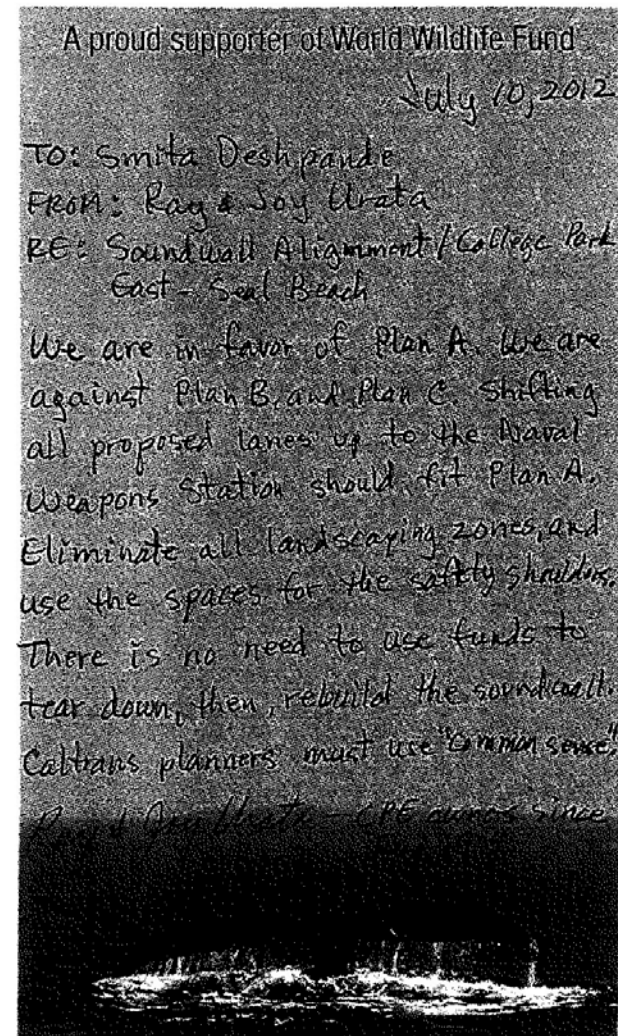 A proud supporter of World Wildlife Fund
July 10, 2012
TO: Smita Deshpande
FROM: Ray & Joy Urata
RE: Soundwall Alignment / College Park
East - Seal Beach
We are in favor of Plan A. We are
against Plan B, and Plan C. Shifting
all proposed lanes up to the Naval
Weapons Station should fit Plan A.
Eliminate all landscaping zones, and
use the spaces for the safety shoulders.
There is no need to use funds to
tear down, then, rebuild the soundwall.
Caltrans planners must use "common sense".
Ray & Joy Urata - CPE owners since